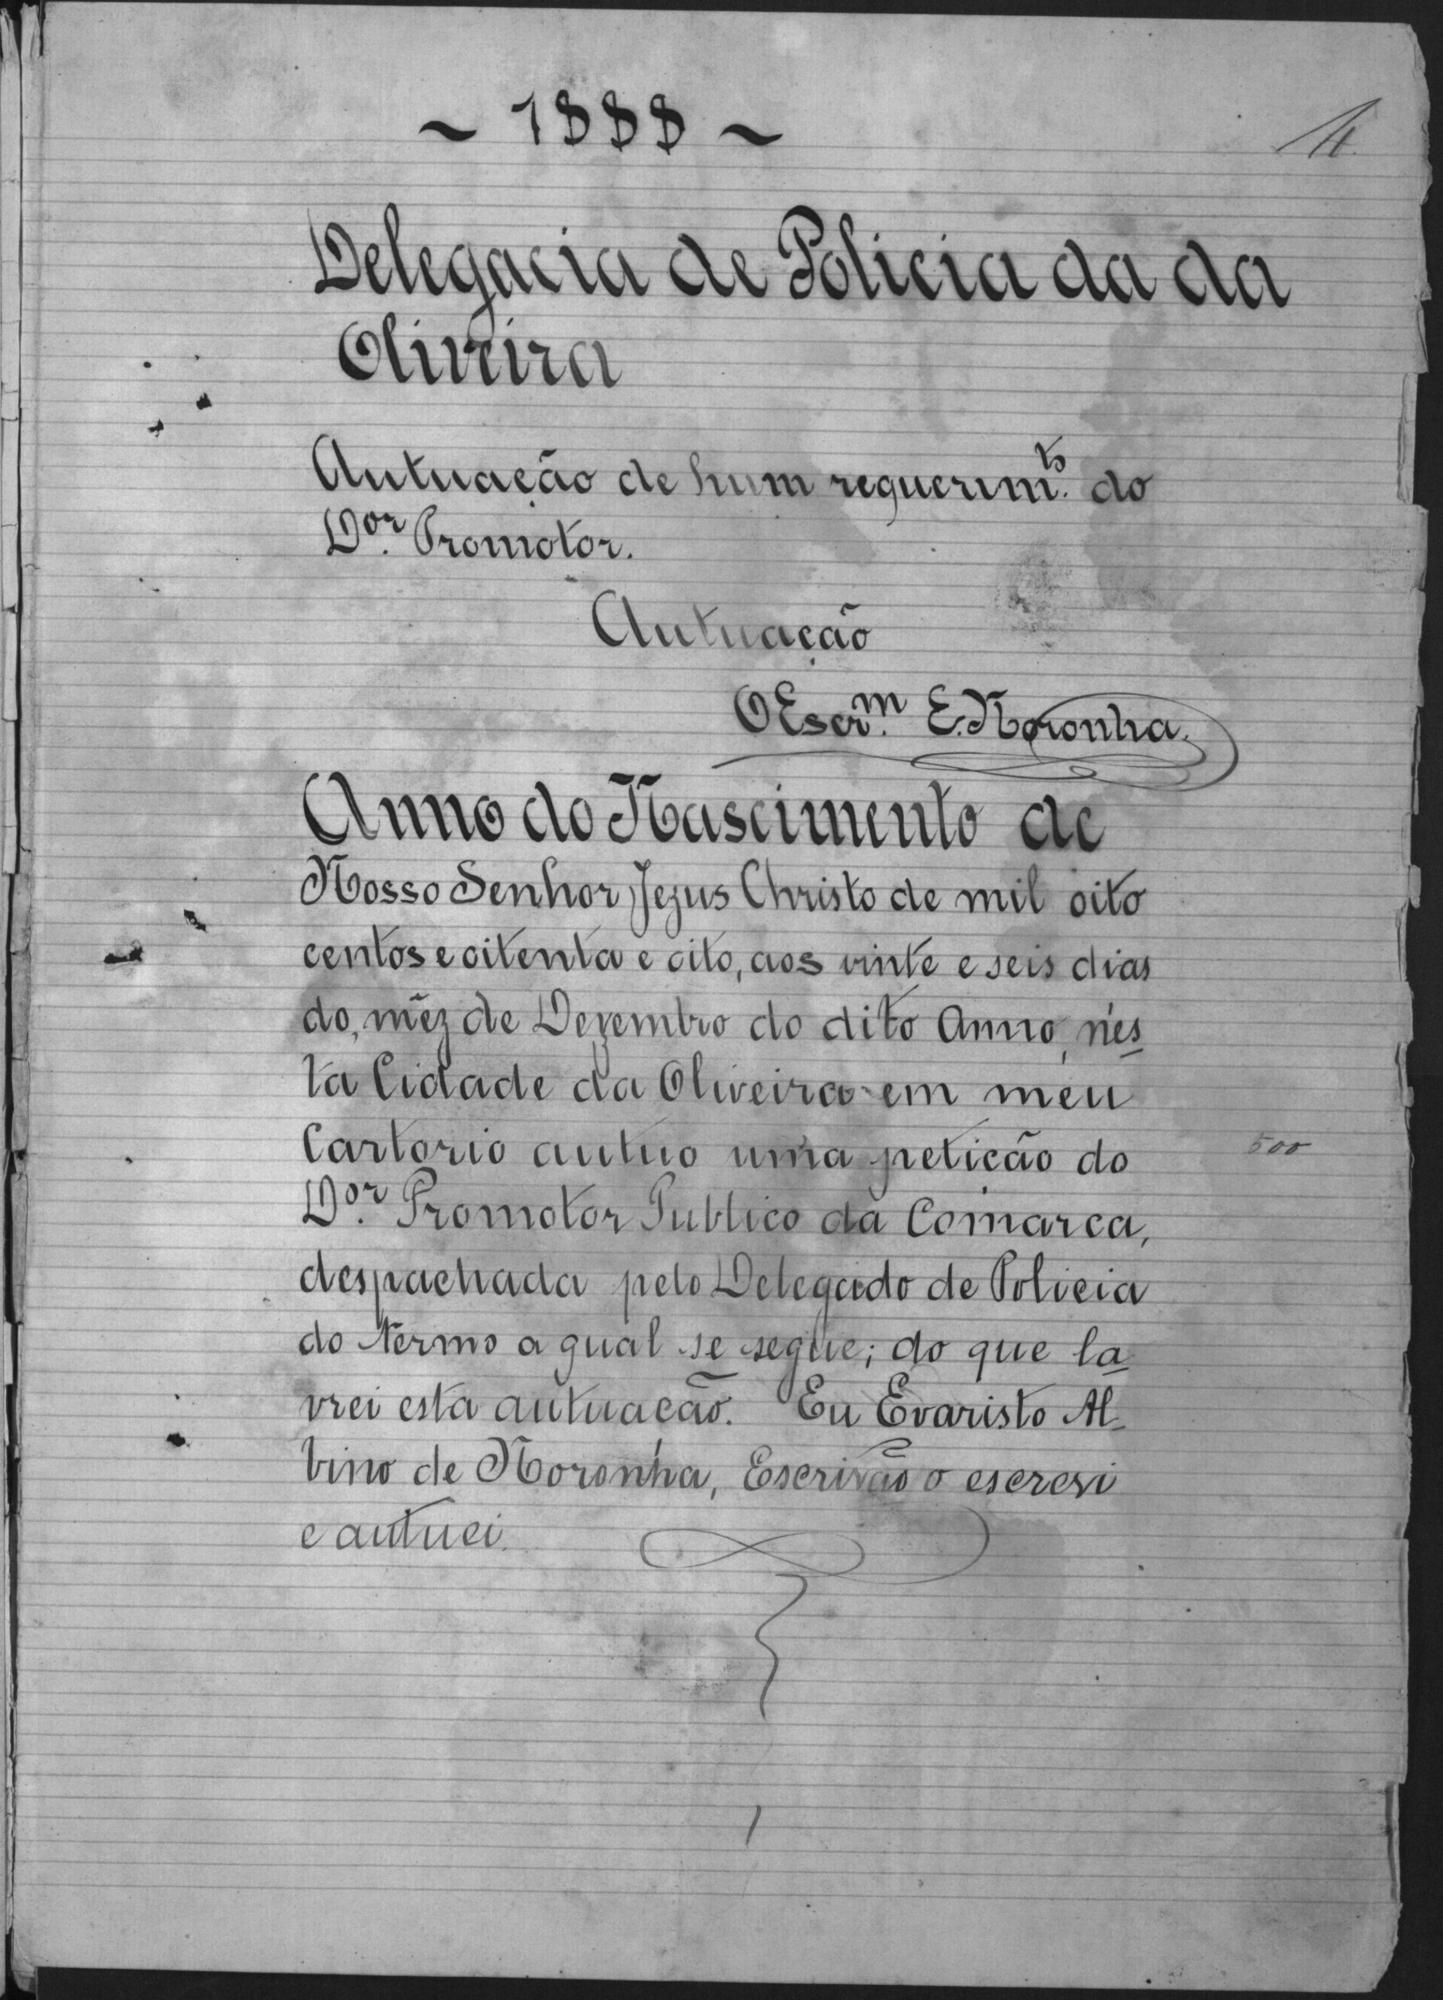 ~ 1888 ~
Delegacia de Policia da da
Oliveira
Autuação de hum requerim.to do
Dor. Promotor.
Autuação
O Escr.m E. Noronha.
Anno do Nascimento de
Nosso Senhor Jezus Christo de mil oito
centos e oitenta e oito, aos vinte e seis dias
do, mêz de Dezembro do dito Anno, nes_
ta Cidade da Oliveira em meu
Cartorio autuo uma petição do
500
Dor. Promotor Publico da Comarca,
despachada pelo Delegado de Policia
do termo a qual se segue; do que la_
vrei esta autuação. Eu Evaristo Al_
bino de Noronha, Escrivão o escrevi
e autuei.